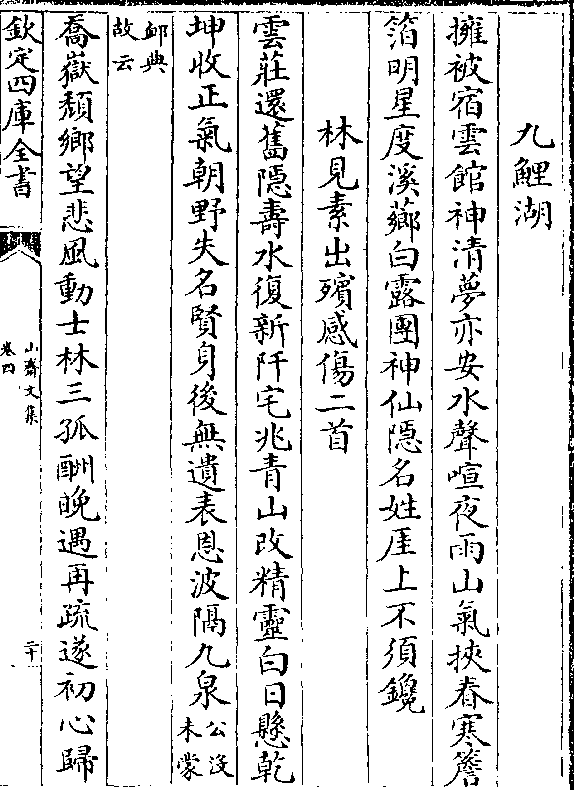 九鯉湖
擁被宿雲館神清夢亦安水聲喧夜雨山氣挾春寒簷
箔明星度溪薌白露團神仙隱名姓厓上不須鑱
林見素出殯感傷二首
雲莊還舊隱壽水復新阡宅兆青山改精靈白日懸乾
坤收正氣朝野失名賢身後無遺表恩波隔九泉公沒未蒙
䘏典故云
喬嶽頽鄉望悲風動士林三孤酬晚遇再疏遂初心歸
欽定四庫全書
山齋文集
卷四
二十